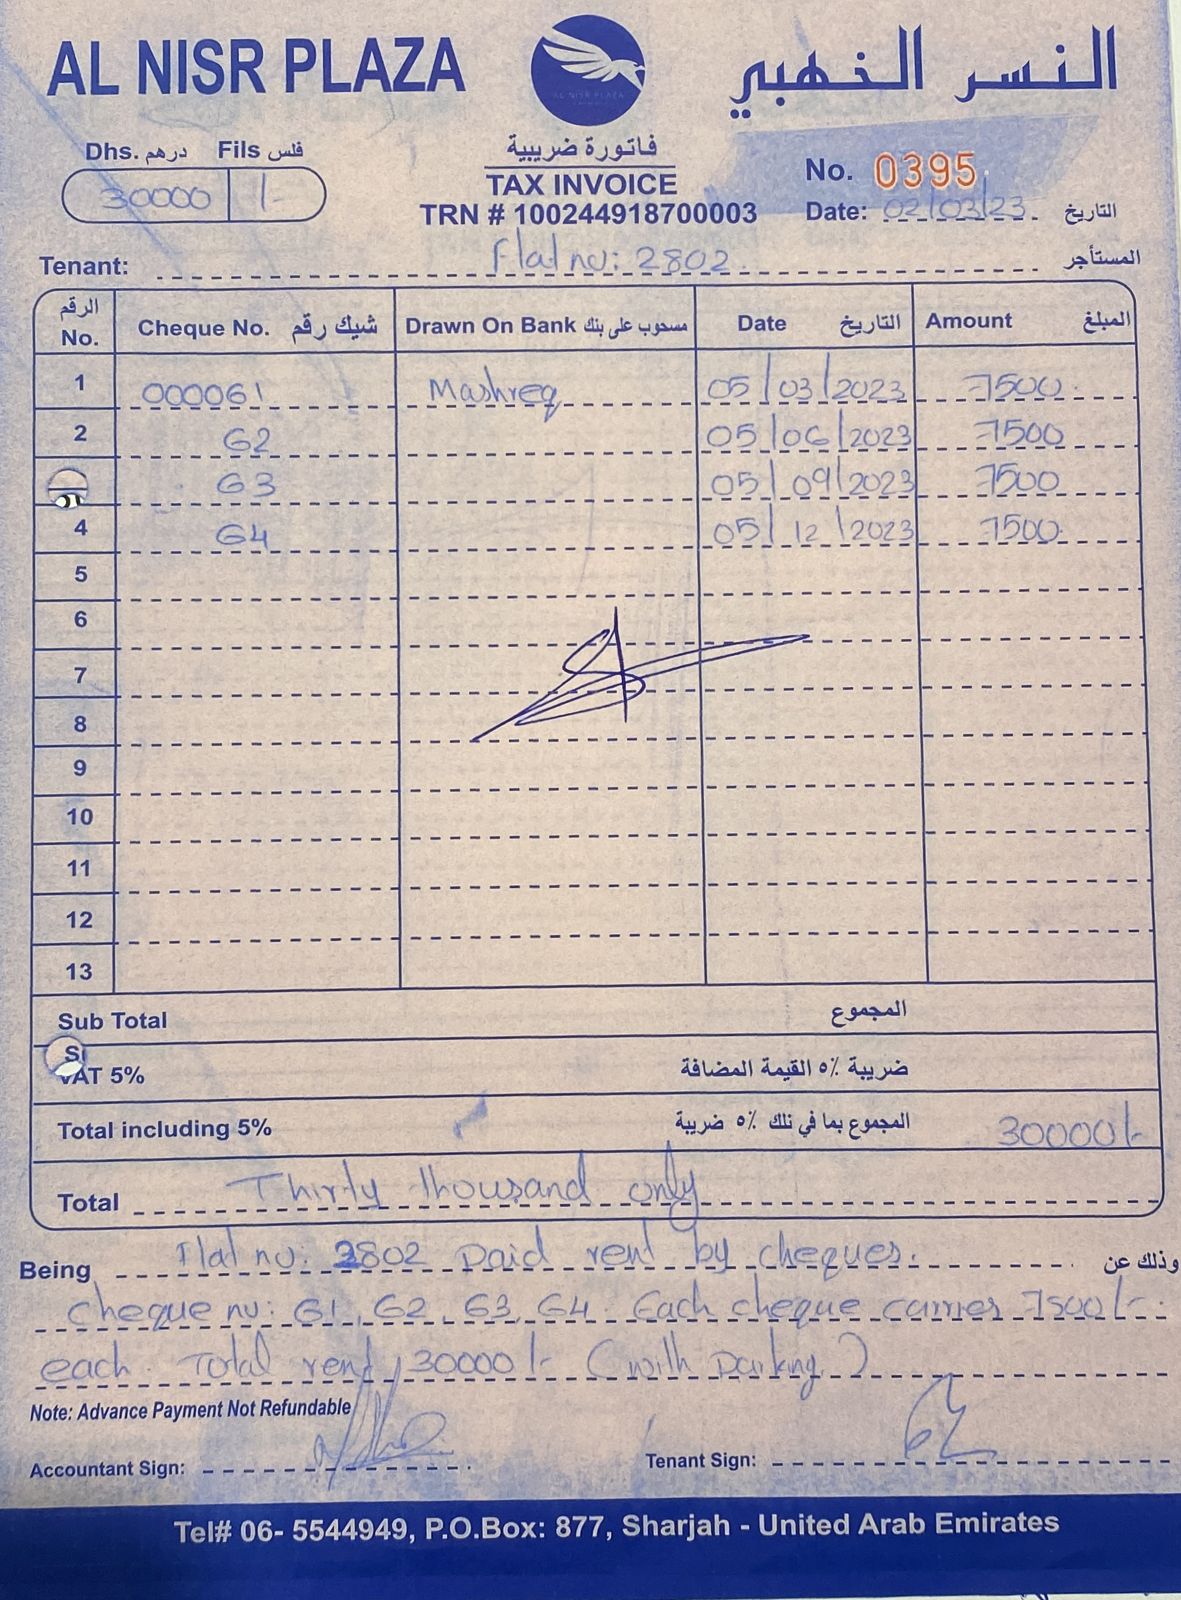 AL NISR PLAZA
النسر الخهبي
AL NISR PLAZA
Dhs. درهم Fils فلس
30000 /-
فاتورة ضريبية
TAX INVOICE
TRN # 100244918700003
No. 0395
Date: 02/03/23 التاريخ
Tenant: Flat no: 2802 المستأجر
الرقم No. Cheque No. شيك رقم Drawn On Bank مسحوب على بنك Date التاريخ Amount المبلغ
1 000061 Mashreq 05/03/2023 7500
2 62 05/06/2023 7500
63 05/09/2023 7500
4 64 05/12/2023 7500
5
6
7
8
9
10
11
12
13
Sub Total المجموع
VAT 5% ضريبة ٥٪ القيمة المضافة
Total including 5% المجموع بما في نلك ٥٪ ضريبة 30000/-
Total Thirty thousand only
Being Flat no: 2802 paid rent by cheques. وذلك عن
Cheque no: 61, 62, 63, 64. Each cheque carrier 7500/-.
each. Total rent 30000/- (with parking)
Note: Advance Payment Not Refundable
Accountant Sign: Tenant Sign:
Tel# 06- 5544949, P.O.Box: 877, Sharjah - United Arab Emirates